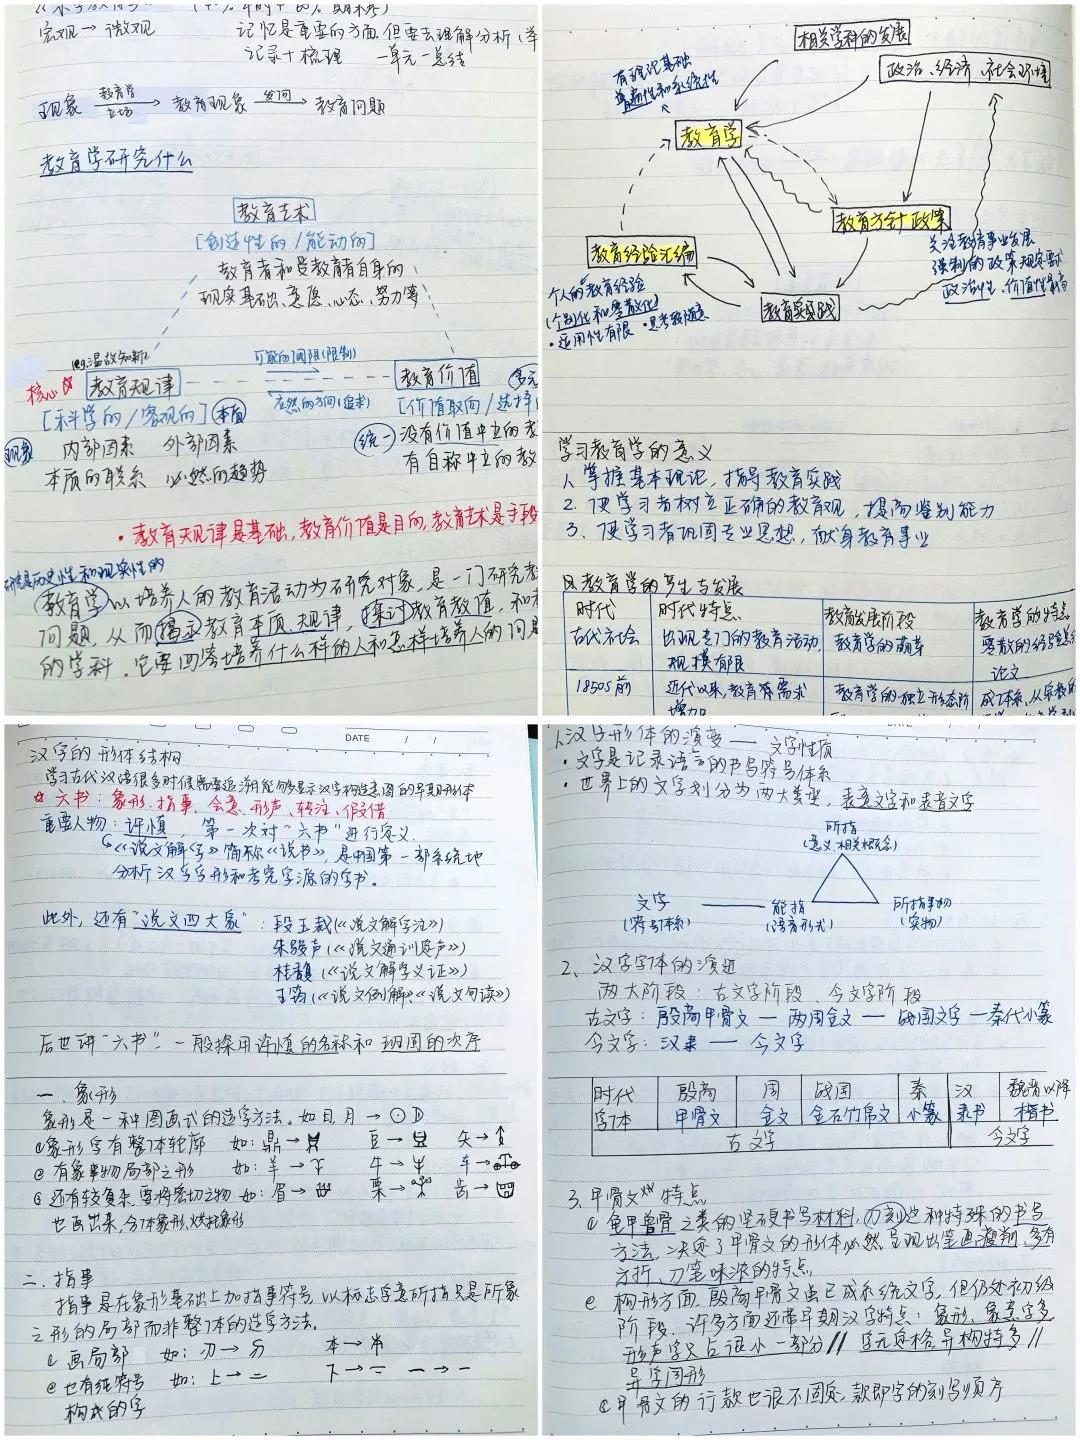 宏观→微观
记忆是重要的方面 但要去理解分析(举
记录+梳理 一单元一总结
现象 教育学立场→ 教育现象 发问→ 教育问题
教育学研究什么
教育艺术
[创造性的/能动的]
教育者和受教育者自身的
现实基础、意愿、心态、努力等
eg.温故知新
可能的阈限(限制)
核心☆ 教育规律
教育价值 多元
应然的方向(追求)
[科学的/客观的] 本质
[价值取向/选择
现象 内部因素 外部因素
统一 没有价值中立的教
本质的联系 必然的趋势
有自称中立的教
·教育规律是基础,教育价值是目的,教育艺术是手段
历史性和现实性的
教育学以培养人的教育活动为研究对象,是一门研究教
问题,从而揭示教育本质、规律,探讨教育教值,和
的学科.它要回答培养什么样的人和怎样培养人的问题
相关学科的发展
政治、经济、社会环境
有理论基础
普遍性和系统性
教育学
教育方针政策
教育经验汇编
关注教育事业发展
强制的政策规定要求
政治性、价值性最高
教育实践
个人的教育经验
(个别化和零散化)
·适用性有限 ·思考较随意
学习教育学的意义
1、掌握基本理论,指导教育实践
2.使学习者树立正确的教育观,提高鉴别能力
3、使学习者巩固专业思想,献身教育事业
教育学的产生与发展
时代 时代特点 教育发展阶段 教育学的特点
古代社会 出现专门的教育活动, 教育学的萌芽 零散的经验总结
规模有限 论文
1850s前 近代以来,教育需求 教育学的独立形态阶 成体系,从
增加
DATE / /
汉字的形体结构
学习古代汉语很多时候需要追溯能够显示汉字构造意图的早期形体
☆六书:象形、指事、会意、形声、转注、假借
重要人物:许慎,第一次对“六书”进行定义.
《说文解字》简称《说书》,是中国第一部系统地
分析汉字字形和考究字源的字书。
此外,还有“说文四大家”:段玉裁(《说文解字注》)
朱骏声(《说文通训定声》)
桂馥(《说文解字义证》)
王筠(《说文例解》《说文句读》)
后世讲“六书”.一般採用许慎的名称和班固的次序
一、象形
象形是一种图画式的造字方法.如日月→
①象形字有整体轮廓 如:鼎→ 豆→ 矢→
② 有象事物局部之形 如:羊→ 牛→ 车→
③ 还有较复杂,要将密切之物 如:眉→ 栗→ 齿→
也画出来,合体象形,烘托象形
二、指事
指事是在象形基础上加指事符号,以标志字意所指只是所象
之形的局部而非整体的造字方法.
① 画局部 如:刃→ 本→
② 也有纯符号 如:上→二 下→ 一→一
构成的字
DATE / /
1.汉字形体的演变——文字性质
·文字是记录语言的书写符号体系
·世界上的文字划分为两大类型,表意文字和表音文字
所指
(意义,相关概念)
文字 —— 能指 所指事物
(符号体系) (语音形式) (实物)
2、汉字字体的演进
两大阶段:古文字阶段、今文字阶段
古文字:殷商甲骨文—两周金文—战国文字—秦代小篆
今文字:汉隶——今文字
时代 殷商 周 战国 秦 汉 魏晋以降
字体 甲骨文 金文 金石竹帛文 小篆 隶书 楷书
古文字 今文字
3.甲骨文 特点
① 龟甲兽骨之类的坚硬书写材料,刀刻这种特殊的书写
方法,决定了甲骨文的形体必然呈现出笔画瘦削,多有
方折,刀笔味浓的特点
② 构形方面,殷商甲骨文虽已成系统文字,但仍处初级
阶段,许多方面还带早期汉字特点:象形、象意字多
形声字只占很小一部分//字元定格异构特多//
异字同形
③甲骨文的行款也很不固定,款即字的刻写顺序